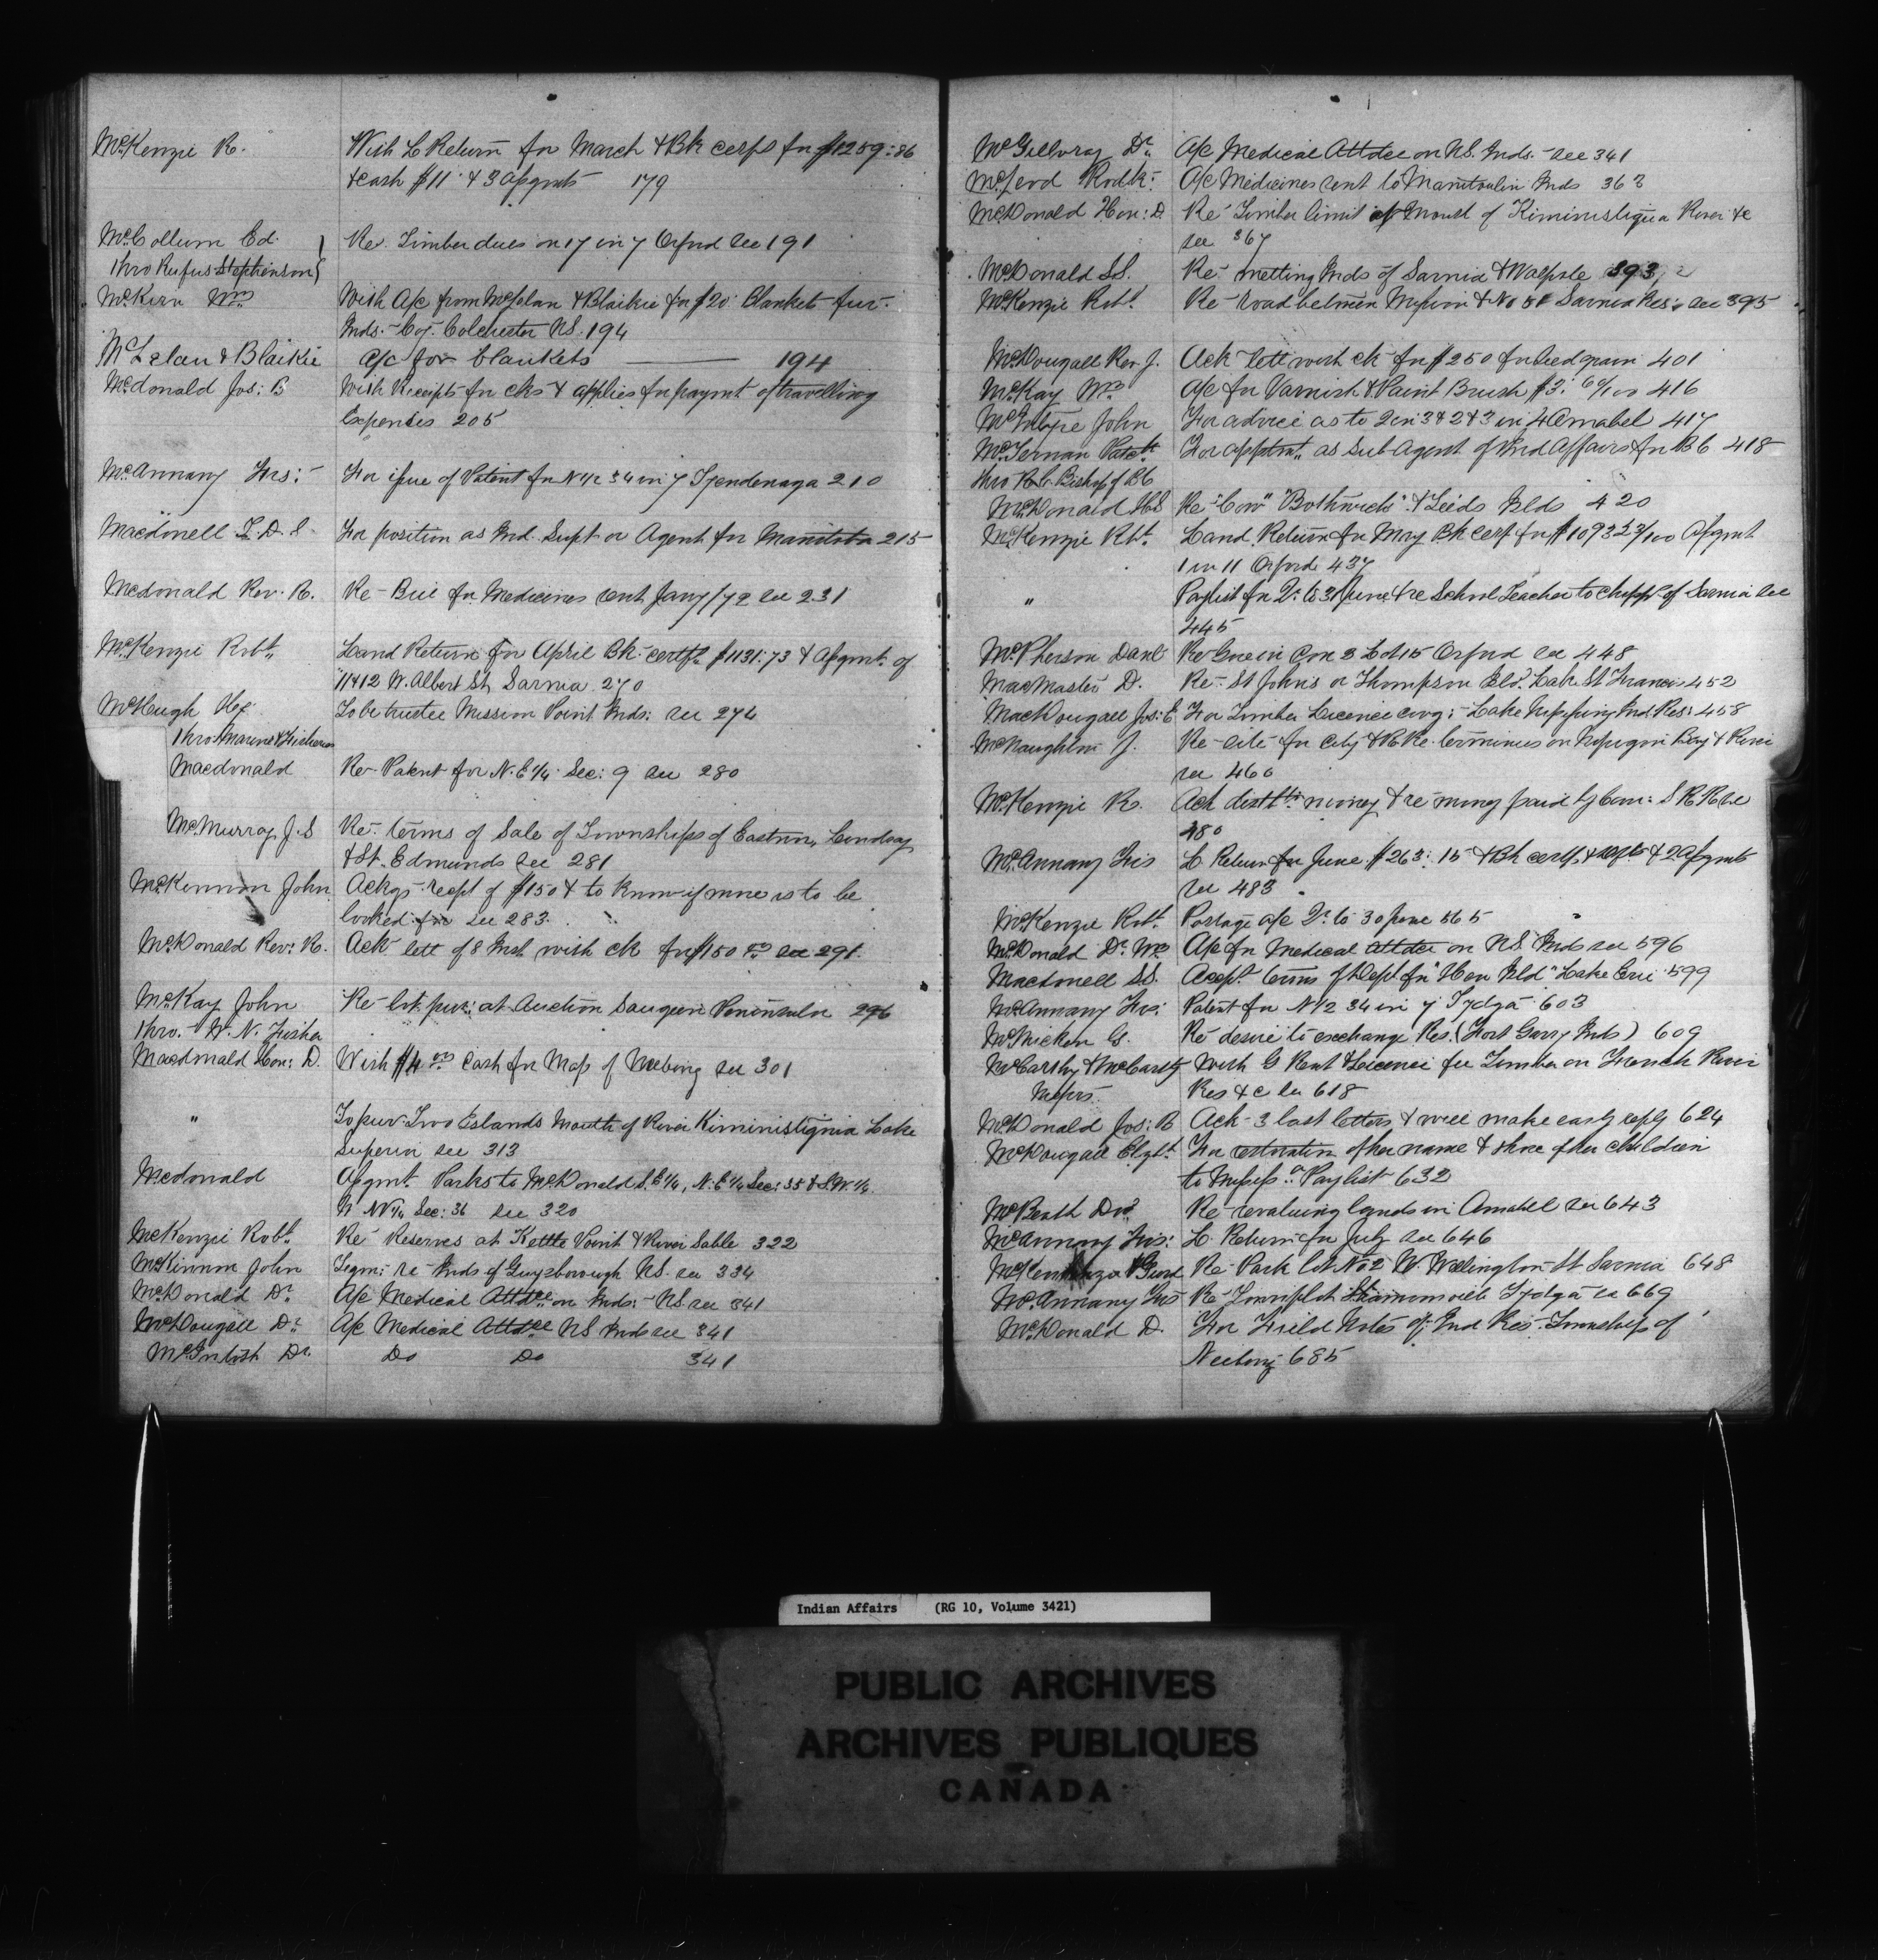 McKenzie R. With L Return for March & Bk certf for $1259:86
& cash $11 & 3 Assgmts 179
McCollum Ed. Re Timber dues on 17 in 7 Orford see 191
Thro Rufus Stephenson
McKinn Wm With A/c from McLelan & Blaikie for $20 Blankets fur.
Inds. Coy. Colchester NS. 194
McLelan & Blaikie a/c for blankets 194
McDonald Jos: B With Receipts for cks & applies for paymt of travelling
Expenses 205
McAnnany Frs: For issue of Patent for N 1/2 34 in 7 Tyendenaga 210
Macdonell T. D. S. For position as Ind. Supt or Agent for Manitoba 215
McDonald Rev. R. Re- Bill for Medicines sent Jany/72 see 231
McKenzie Robt. Land Return for April Bk. certf $1131:73 & Assgmt. of
11 & 12 W. Albert St. Sarnia 270
McHugh To be trustee Mission Point Inds: see 274
Thro: Marine & Fisheries
Macdonald Re- Patent for N. E 1/4 Sec: 9 see 280
McMurray J. S Re. terms of Sale of Townships of Eastnor, Lindsay
& St. Edmunds see 281
McKinnon John Ackgs. recpt of $150 & to know if more is to be
looked for see 283.
McDonald Rev: R. Ack lett of 8 Inst with ck for $150 see 291.
McKay John Re lot pur: at Auction Saugeen Peninsula 296
Thro. W. N. Fisher
Macdonald Hon: D. With $4.00 Cash for Map of Neebing see 301
" To pur. Two Islands Mouth of River Kiministiquia Lake
Superior see 313
McDonald Assgmt. Parks to McDonald S. E 1/4, N. E 1/4 Sec: 35 & S. W. 1/4
N NW 1/4 Sec: 36 see 320
McKenzie Robt. Re Reserves at Kettle Point & River Sable 322
McKinnon John Tegm: re Inds of Guysborough NS. see 334
McDonald Dr. A/c Medical Attdce on Inds: NS see 341
McDougall Dr. A/c Medical Attdce NS Inds see 341
McIntosh Dr. Do Do 341
McGillvray Dr. A/c Medical Attdce on NS. Inds. see 341
McLeod Rodk. A/c Medicines sent to Manitoulin Inds 363
McDonald Hon: D. Re Timber limit at Mouth of Kiministiquia River &c
see 367
McDonald SS. Re- Inds of Sarnia & Walpole 393
McKenzie Robt. Re- road between Mission & No Sarnia Res: see 395
McDougall Rev. J. Ack lett with ck for $250 for Seed grain 401
McKay Wm A/c for Varnish & Paint Brush $3: 60/100 416
McIntyre John For advice as to 2 in 3 & 2 & 3 in 4 Amabel 417
McTernan Patck. For apptmt. as Sub Agent of Ind Affairs for BC 418
Thro R. C. Bishop of BC
McDonald HS Re "Cow" "Bothwicks" & Leeds Islds 420
McKenzie Rbt. Land Return for May Bk certf for $1093 23/100 Assgmt
1 in 11 Orford 437
" Paylist for Qr. to 31 June & re School Teacher to Chipps of Sarnia see
445
McPherson Danl Re Con 3 Lot 15 Orford see 448
MacMaster D. Re- St Johns or Thompson Isld. Lake St Francis 452
MacDougall Jos: E For Timber Licence covg: Lake Nipissing Ind Res: 458
McNaughton J. Re- site for City & R Re- terminus on Nepigon Bay & River
see 460
McKenzie R. Ack money & re money paid by Can: S R R &c
480
McAnnany Frs L Return for June $263:15 & Bk certf & & 2 Assgmts
see 483
McKenzie Robt. Postage a/c Qr. to 30 June 565
McDonald Dr. Wm A/c for Medical Attdce on NS Inds see 596
Macdonell SS. Accept. terms of Dept for "Hen Isld" Lake Erie 599
McAnnany Frs: Patent for N 1/2 34 in 7 Tydga 603
McMicken G. Re desire to exchange Res. (Fort Garry Inds) 609
McCarthy & McCarthy With G Rent & Licence fee Timber on French River
Messrs. Res &c see 618
McDonald Jos: B Ack 3 last letters & will make early reply 624
McDougall Elzbt. For restoration of her name & those of her children
to Missisga Paylist 632
McBeath Dvd Re- revaluing lands in Amabel see 643
McAnnany Frs: L. Return for July see 646
McKenzie & Gurd Re- Park lot No 2 W. Wellington St Sarnia 648
McAnnany Frs Re Townplot Shannonville Tydga see 669
McDonald D. For Field Notes of Ind Res. Township of
Neebing 685
Indian Affairs (RG 10, Volume 3421)
PUBLIC ARCHIVES
ARCHIVES PUBLIQUES
CANADA